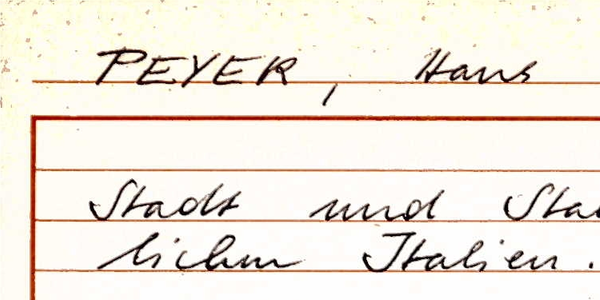 PEYER, Hans
Stadt und Sta
lichen Italien.